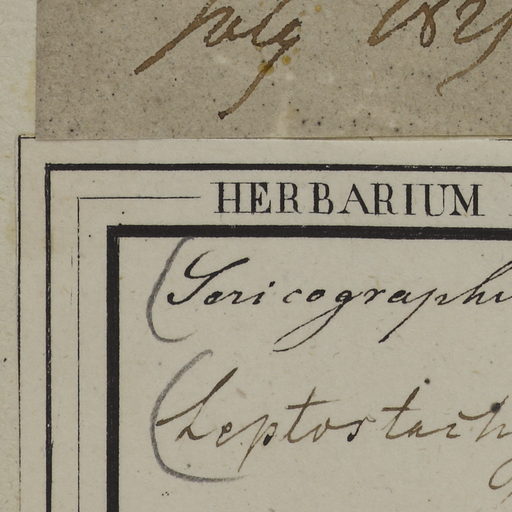 July 182
HERBARIUM
(Sericographi
(Leptostachy